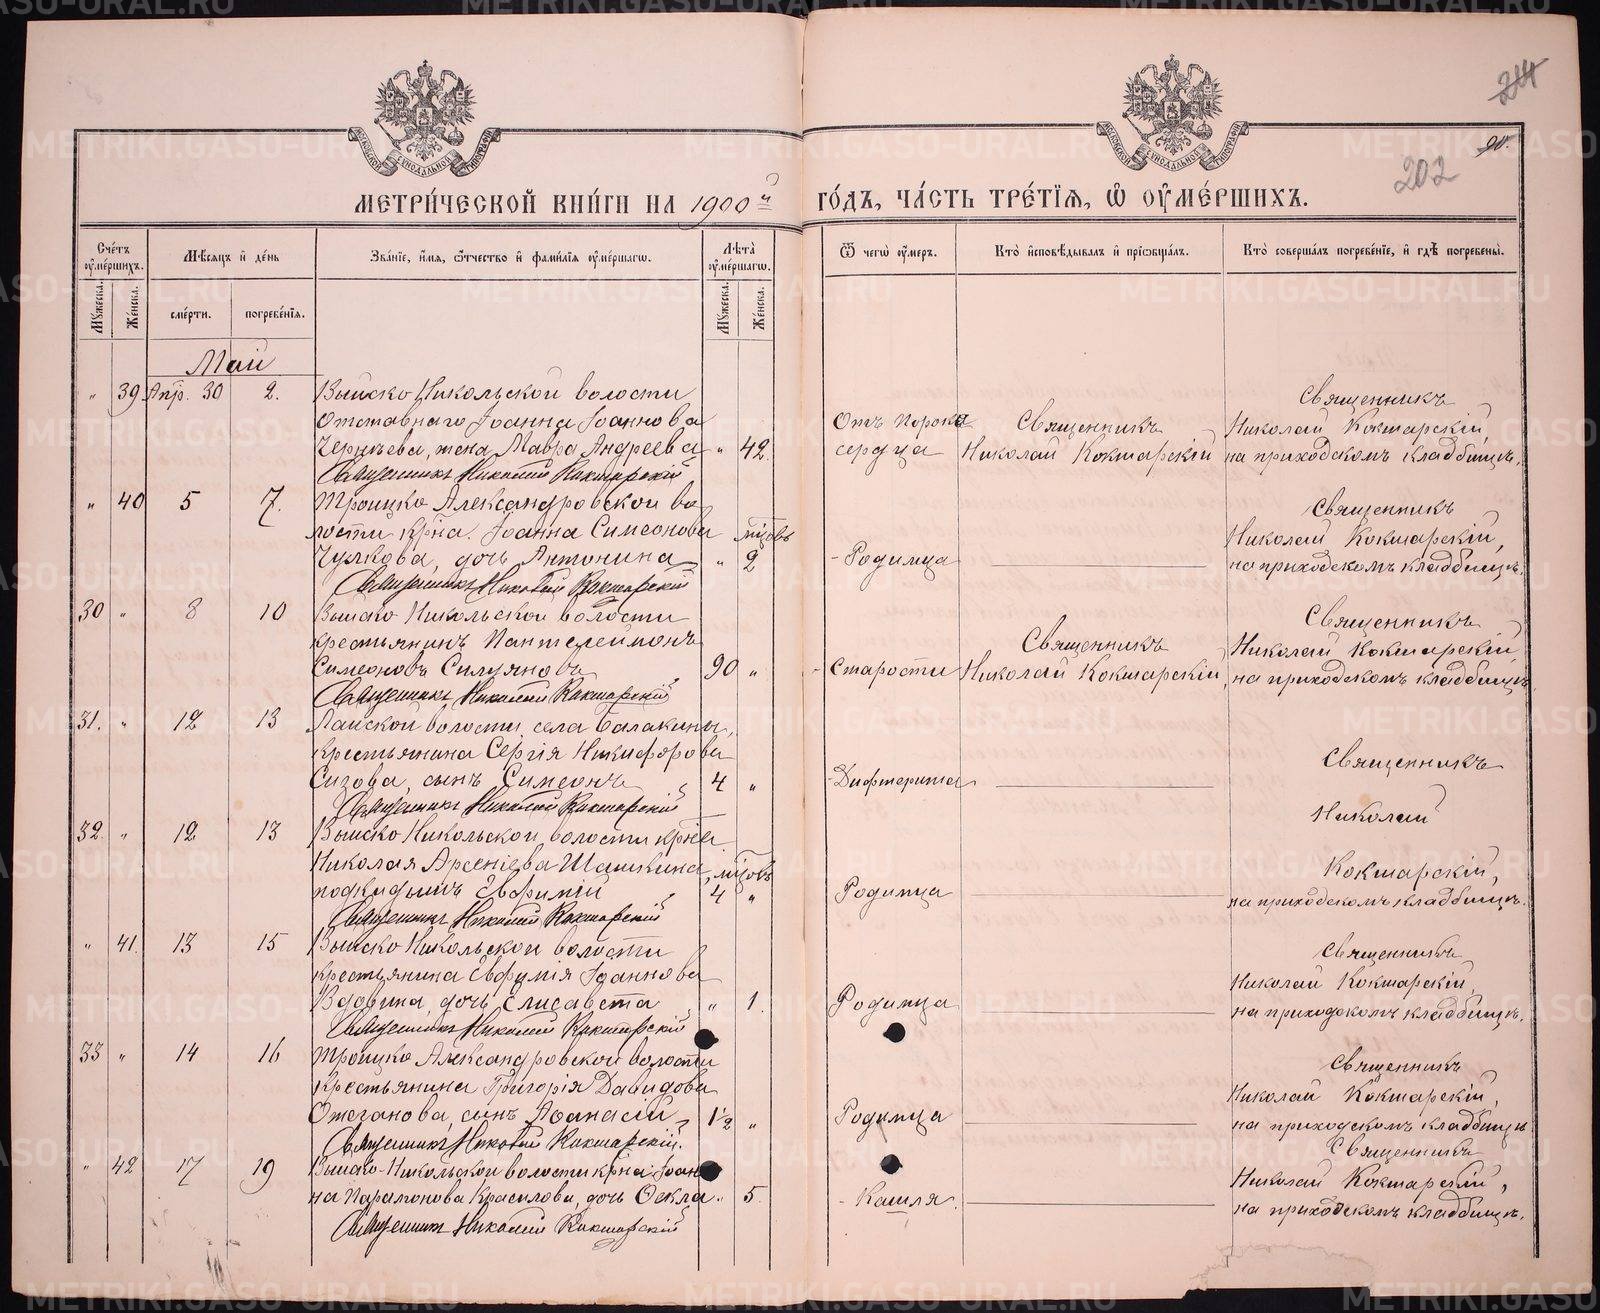 МЕТРИ́ЧЕСКОЙ КНИ́ГИ НА 1900й ГО́ДЪ, ЧА́СТЬ ТРЕ́ТІЯ, Ѡ҆ ОУ҆МЕ́РШИХЪ.
202
Сче́тъ оу҆ме́ршихъ.
Мꙋжеска.
Же́нска.
Мѣ́сяцъ и҆ де́нь
сме́рти.
погребе́нїя.
Зва́нїе, и҆́мя, ѻ҆́тчество и҆ фами́лїя оу҆ме́ршагѡ.
Лѣ́та оу҆ме́ршагѡ.
Мꙋжеска.
Же́нска.
Ѿ чегѡ̀ оу҆́меръ.
Кто̀ и҆сповѣ́дывалъ и҆ прїѡбща́лъ.
Кто̀ соверша́лъ погребе́нїе, и҆ гдѣ̀ погребены̀.
Май
" 39 Апр. 30 2.
Выйско Никольской волости
Отставнаго Іоанна Іоаннова
Чернѣева, жена Мавра Андреева " 42.
Священникъ Николай Кокшарскій
Отъ порока
сердца
Священникъ
Николай Кокшарскій
Священникъ
Николай Кокшарскій,
на приходскомъ кладбищѣ.
" 40 5 7.
Троицко Александровской во
лости крѣ́на. Іоанна Симеонова мѣ́цовъ
Чулкова, дочь Антонина " 2
Священникъ Николай Кокшарскій
Родимца
Священникъ
Николай Кокшарскій,
на приходскомъ кладбищѣ.
30 " 8 10
Выйско Никольской волости
крестьянинъ Пантелеимонъ
Симеоновъ Силуяновъ 90 "
Священникъ Николай Кокшарскій
Старости
Священникъ
Николай Кокшарскій,
Священникъ
Николай Кокшарскій
на приходскомъ кладбищѣ
31. " 12 13
Лайской волости, села Балакины,
крестьянина Сергія Никифорова
Сизова, сынъ Симеонъ 4 "
Священникъ Николай Кокшарскій
Дифтерита
Священникъ
Николай
32. " 12 13
Выйско Никольской волости крѣ́на
Николая Арсеніева Шашкина, мѣ́цовъ
подкидышъ Евфимій 4 "
Священникъ Николай Кокшарскій
Родимца
Кокшарскій,
на приходскомъ кладбищѣ.
" 41. 13 15
Выйско Никольской волости
крестьянина Евфимія Іоаннова
Вдовина, дочь Елисавета " 1.
Священникъ Николай Кокшарскій
Родимца
Священникъ
Николай Кокшарскій,
на приходскомъ кладбищѣ.
33 " 14 16
Троицко Александровской волости
Крестьянина Григорія Давидова
Отеганова, сынъ Аѳанасій 1½ "
Священникъ Николай Кокшарскій.
Родимца
Священникъ
Николай Кокшарскій,
на приходскомъ кладбищѣ
" 42 17 19
Выйско-Никольской волости крѣ́на Іоан
на Парамонова Красилова, дочь Ѳекла " 5.
Священникъ Николай Кокшарскій
Кашля.
Священникъ
Николай Кокшарскій,
на приходскомъ кладбищѣ.
METRIKI.GASO-URAL.RU